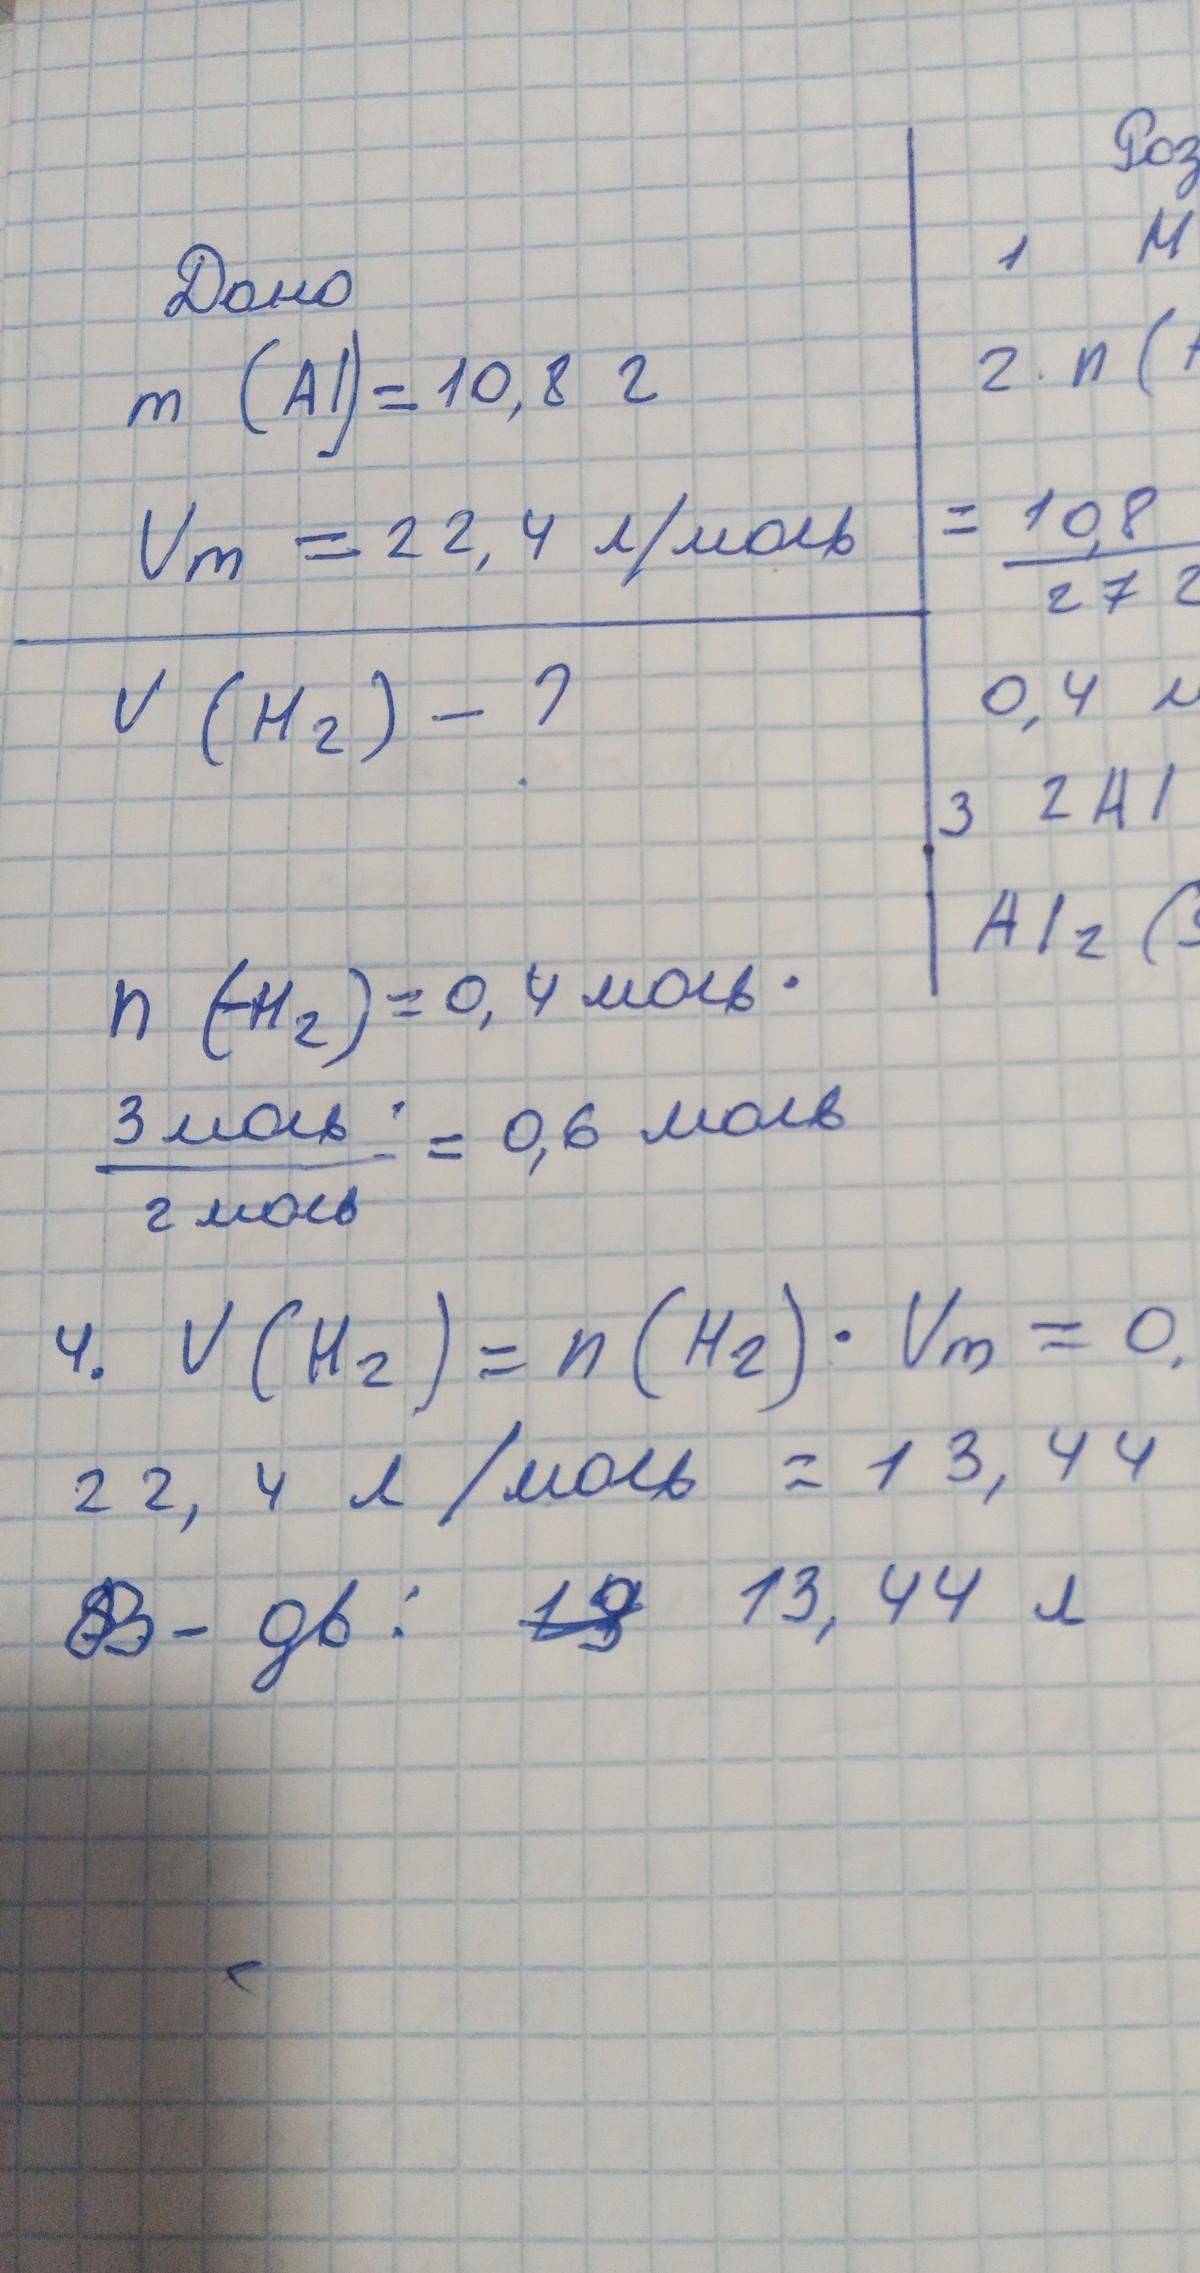 Дано
m (Al) = 10,8 г
Vm = 22,4 л/моль
V (H2) - ?
Роз
1 M
2. n (A
= 10,8
27 г
0,4 м
3 2Al
Al2 (S
n (H2) = 0,4 моль ·
3 моль : = 0,6 моль
2 моль
4. V (H2) = n (H2) · Vm = 0,
22, 4 л /моль = 13, 44
В - дь : 13, 44 л